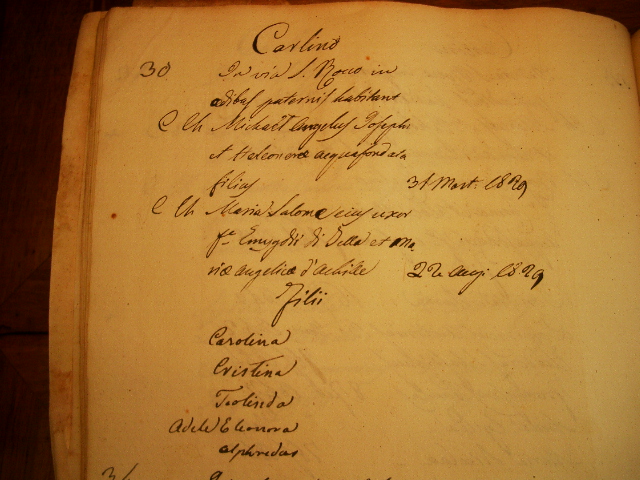 Carlino
30 In via S. Rocco in
ædibus paternis habitant
C Ch Michaël Angelus Josephi
et Heleonoræ Acquafondata
filius 31 Mart. 1829
C Ch Maria Salome ejus uxor
fa Emygdii di Vella et Ma
riæ Angelicæ d'Achille 22 Aug. 1829
Filii
Carolina
Cristina
Teolinda
Adele Eleonora
Alphredus
31